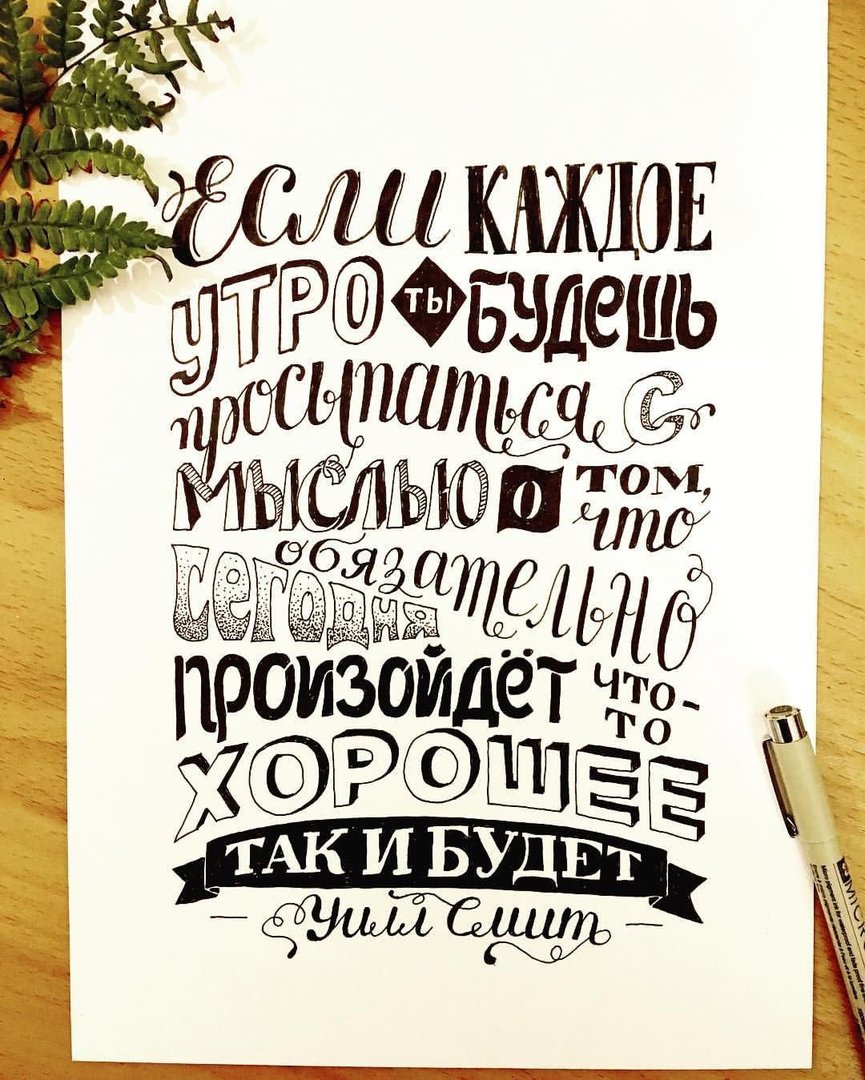 Если КАЖДОЕ
УТРО ТЫ БУДЕШЬ
просыпаться с
МЫСЛЬЮ О ТОМ,
что
обязательно
сегодня
ПРОИЗОЙДЁТ ЧТО-
ТО
ХОРОШЕЕ
ТАК И БУДЕТ
— Уилл Смит —